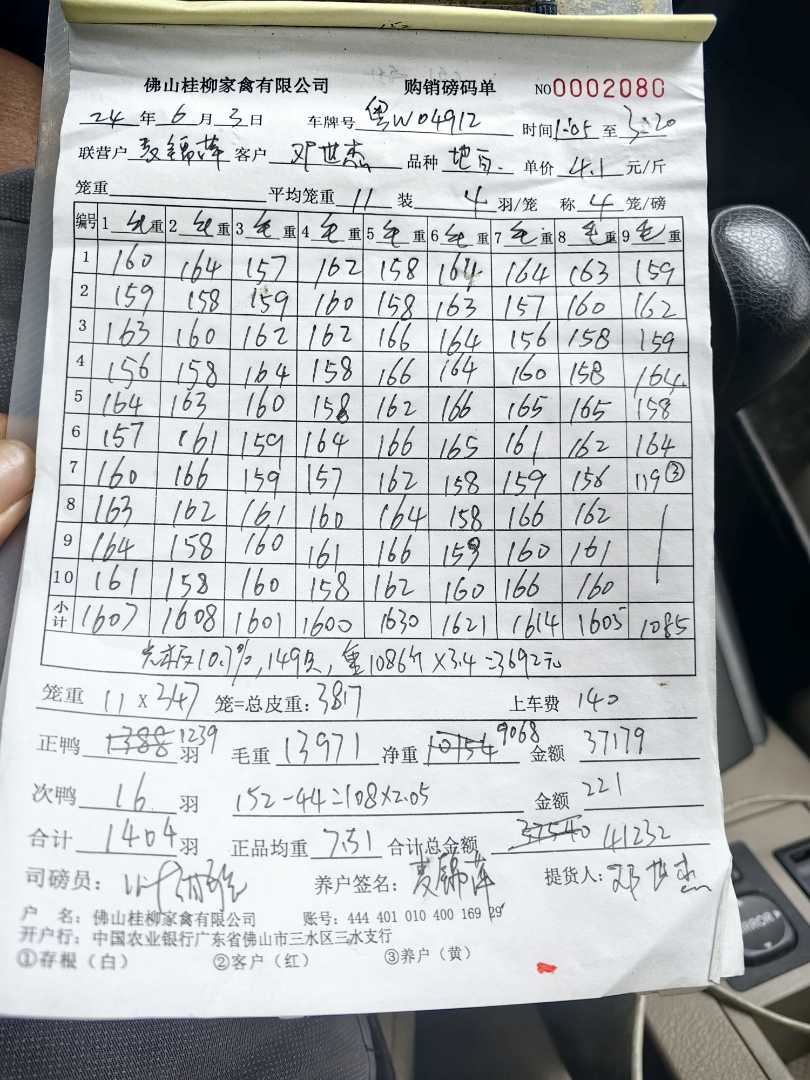 佛山桂柳家禽有限公司 购销磅码单 NO0002080
24 年 6 月 3 日 车牌号 粤W04912 时间 1:05 至 3:20
联营户 麦锦萍 客户 邓世杰 品种 地百. 单价 4.1 元/斤
笼重 平均笼重 11 装 4 羽/笼 称 4 笼/磅
编号 1 毛重 2 毛重 3 毛重 4 毛重 5 毛重 6 毛重 7 毛重 8 毛重 9 毛重
1 160 164 157 162 158 164 164 163 159
2 159 158 159 160 158 163 157 160 162
3 163 160 162 162 166 164 156 158 159
4 156 158 164 158 166 164 160 158 164
5 164 163 160 158 162 166 165 165 158
6 157 161 159 164 166 165 161 162 164
7 160 166 159 157 162 158 159 156 119③
8 163 162 161 160 164 158 166 162
9 164 158 160 161 166 159 160 161
10 161 158 160 158 162 160 166 160
小计 1607 1608 1601 1600 1630 1621 1614 1605 1085
10.7%,149只, 重1086斤×3.4=3692元
笼重 11×347 笼=总皮重: 3817 上车费 140
正鸭 1388 1239 羽 毛重 13971 净重 10154 9068 金额 37179
次鸭 16 羽 152-44=108×2.05 金额 221
合计 1404 羽 正品均重 7.31 合计总金额 37540 41232
司磅员: 养户签名: 麦锦萍 提货人: 邓世杰
户 名: 佛山桂柳家禽有限公司 账号: 444 401 010 400 169 29
开户行: 中国农业银行广东省佛山市三水区三水支行
①存根(白) ②客户(红) ③养户(黄)
MIRROR